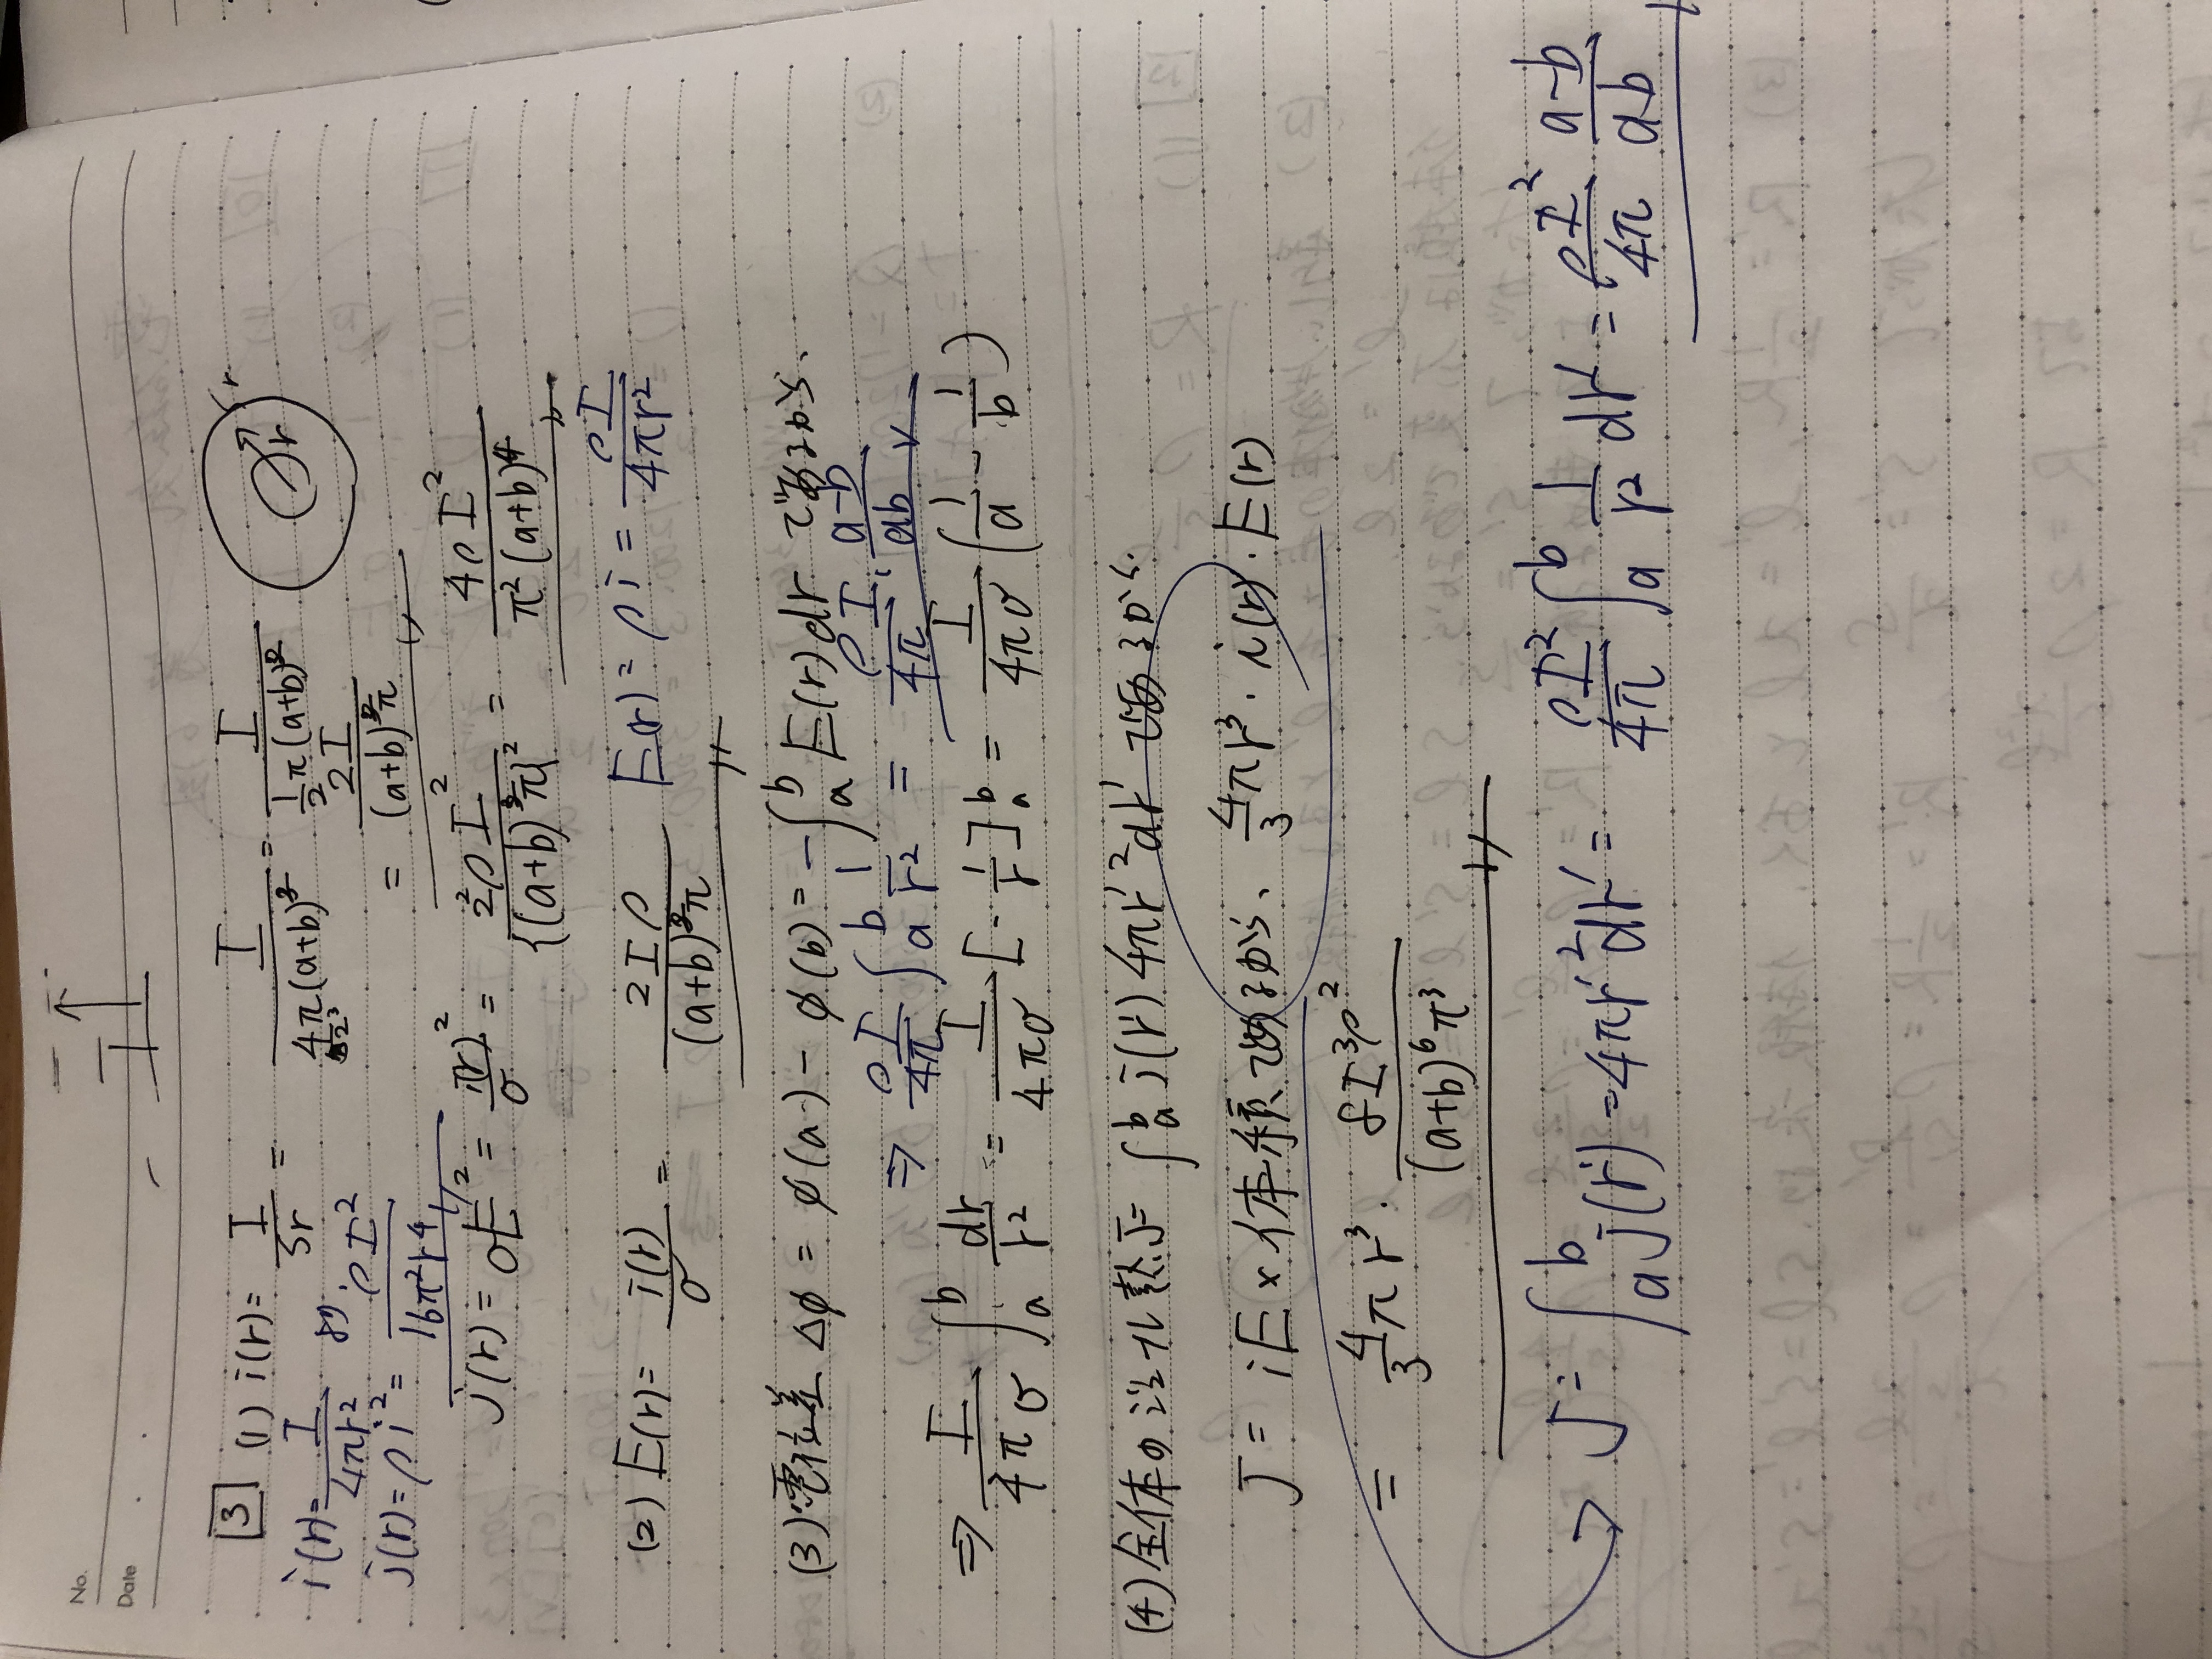 No.
Date
3 (1) i(r) = I/Sr = I/4π(a+b)² = I/½π(a+b)²
r
r
i(r) = I/4πr² より.
= 2I/(a+b)²π
j(r) = ρi² = ρI²/16π²r⁴
j(r) = σE² = i(r)²/σ = 2²ρI²/{(a+b)²π}² = 4ρI²/π²(a+b)⁴
(2) E(r) = i(r)/σ = 2Iρ/(a+b)²π E(r) = ρi = ρI/4πr²
(3) 電位差 Δφ = φ(a) - φ(b) = -∫ₐᵇ E(r)dr であるから、
⇒ ρI/4π ∫ₐᵇ 1/r² = ρI/4π · a-b/ab
⇒ I/4πσ ∫ₐᵇ dr/r² = I/4πσ [-1/r]ₐᵇ = I/4πσ (1/a - 1/b)
(4) 全体のジュール熱J= ∫ₐᵇ j(r')4πr'²dr' であるから.
J = iE×体積であるから、 4/3πr³ · i(r) · E(r)
= 4/3πr³ · 8I³ρ²/(a+b)⁶π³
→ J = ∫ₐᵇ j(r') = 4πr'²dr' = ρI²/4π ∫ₐᵇ 1/r² dr' = ρI²/4π a-b/ab